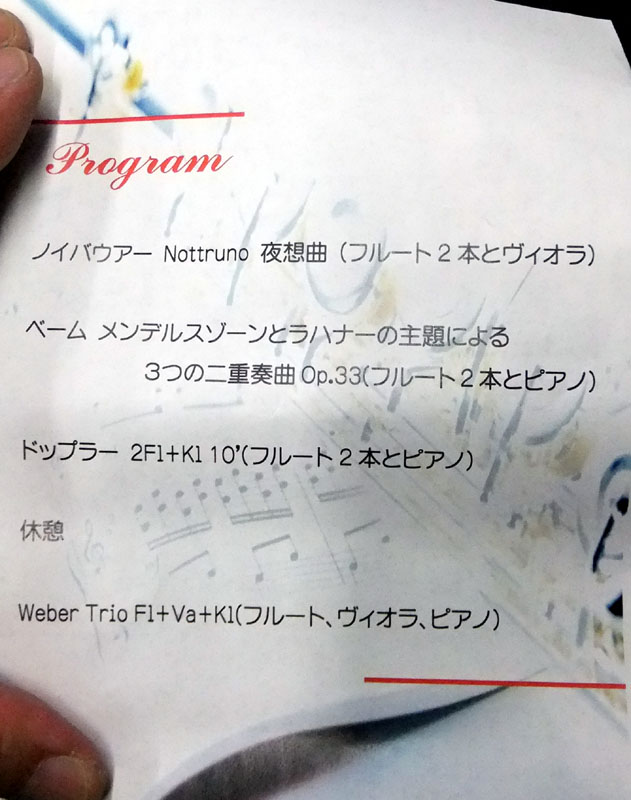 Program
ノイバウアー Nottruno 夜想曲（フルート２本とヴィオラ）
ベーム メンデルスゾーンとラハナーの主題による
３つの二重奏曲 Op.33(フルート２本とピアノ)
ドップラー 2Fl+Kl 10'(フルート２本とピアノ)
休憩
Weber Trio Fl+Va+Kl(フルート、ヴィオラ、ピアノ)